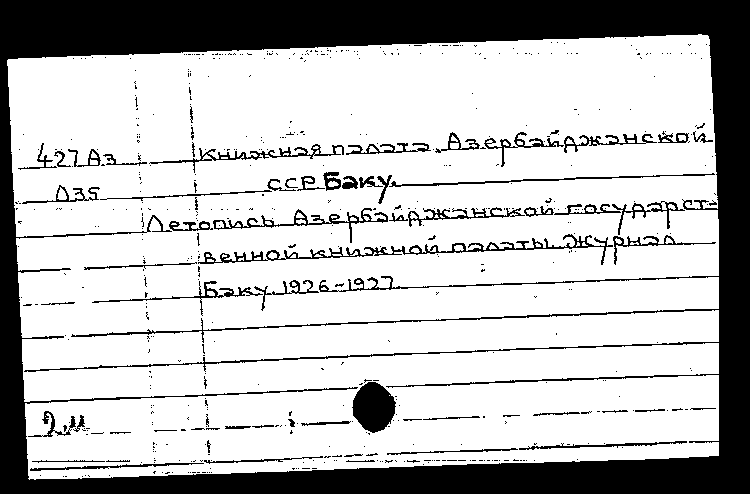 427 Аз Книжная палата, Азербайджанской
Л35 ССР Баку.
Летопись Азербайджанской государст-
венной книжной палаты. Журнал
Баку. 1926-1927.